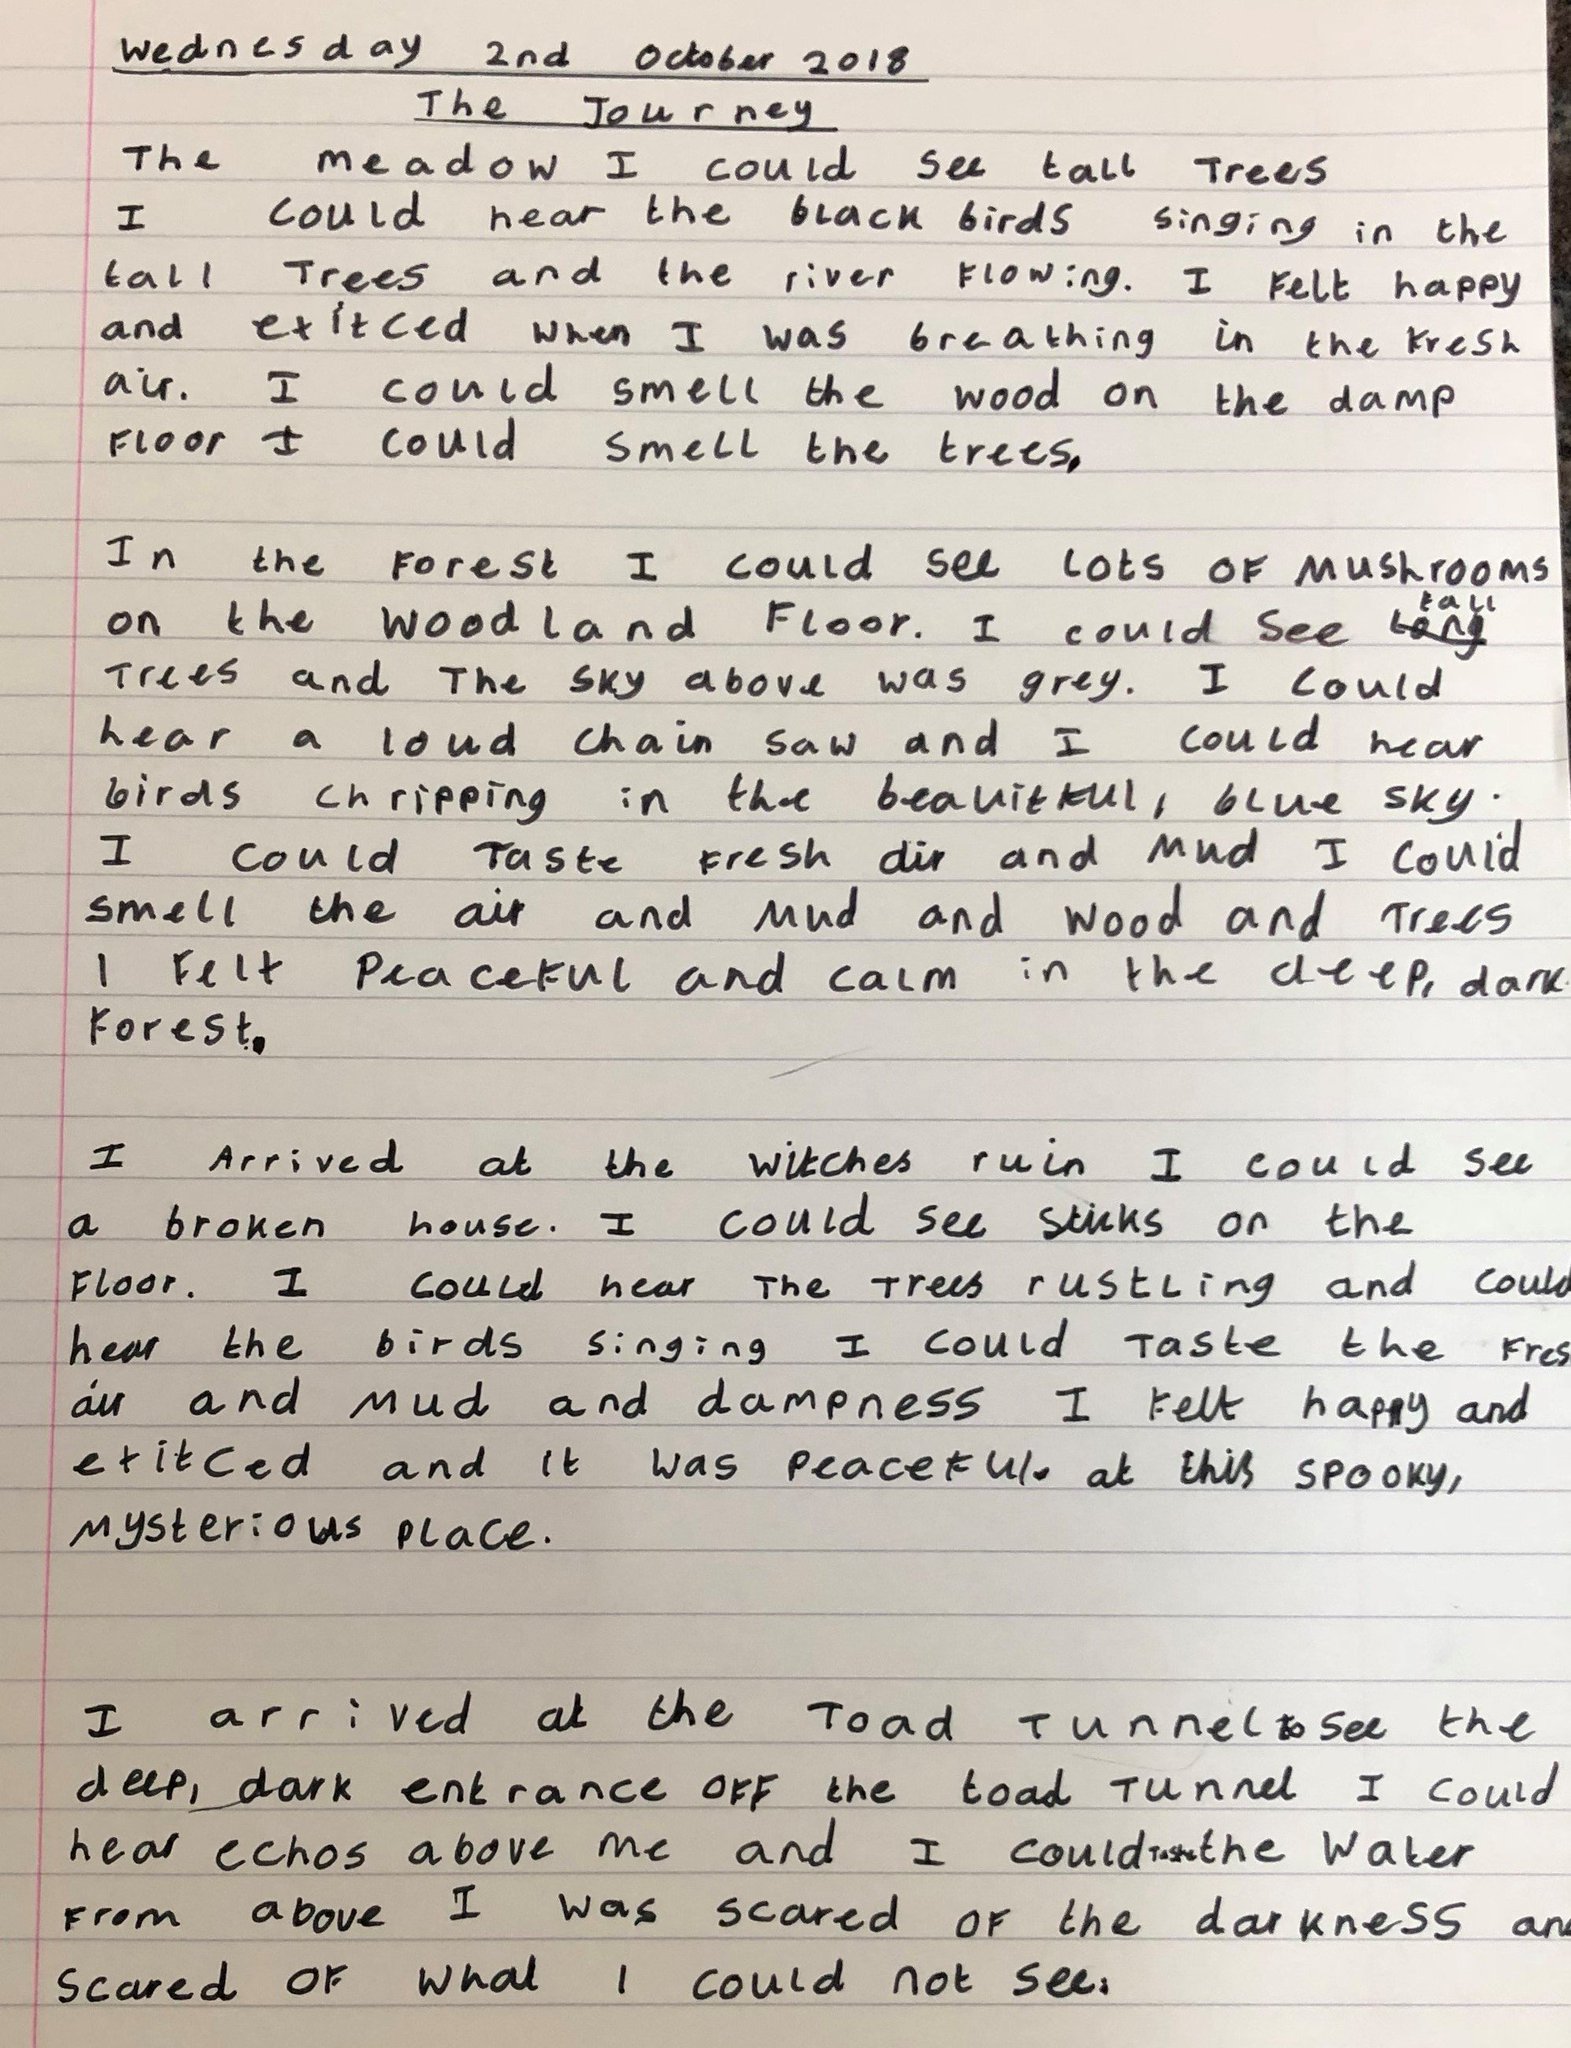 Wednesday 2nd October 2018
The Journey
The meadow I could see tall Trees
I could hear the black birds singing in the
tall Trees and the river flowing. I felt happy
and exitced when I was breathing in the fresh
air. I could smell the wood on the damp
floor I could smell the trees.
In the forest I could see lots of Mushrooms
on the woodland floor. I could see long tall
Trees and The sky above was grey. I could
hear a loud chain saw and I could hear
birds chripping in the beauitful, blue sky.
I could Taste fresh air and Mud I could
smell the air and Mud and wood and Trees
I felt Peaceful and calm in the deep, dark
forest.
I Arrived at the witches ruin I could see
a broken house. I could see sticks on the
floor. I could hear The Trees rustling and could
hear the birds singing I could Taste the fres
air and Mud and dampness I felt happy and
exitced and it was peaceful. at this spooky,
Mysterious place.
I arrived at the Toad Tunnel to see the
deep, dark entrance off the toad Tunnel I could
hear echos above me and I could Taste the Water
from above I was scared of the darkness an
scared of what I could not see.